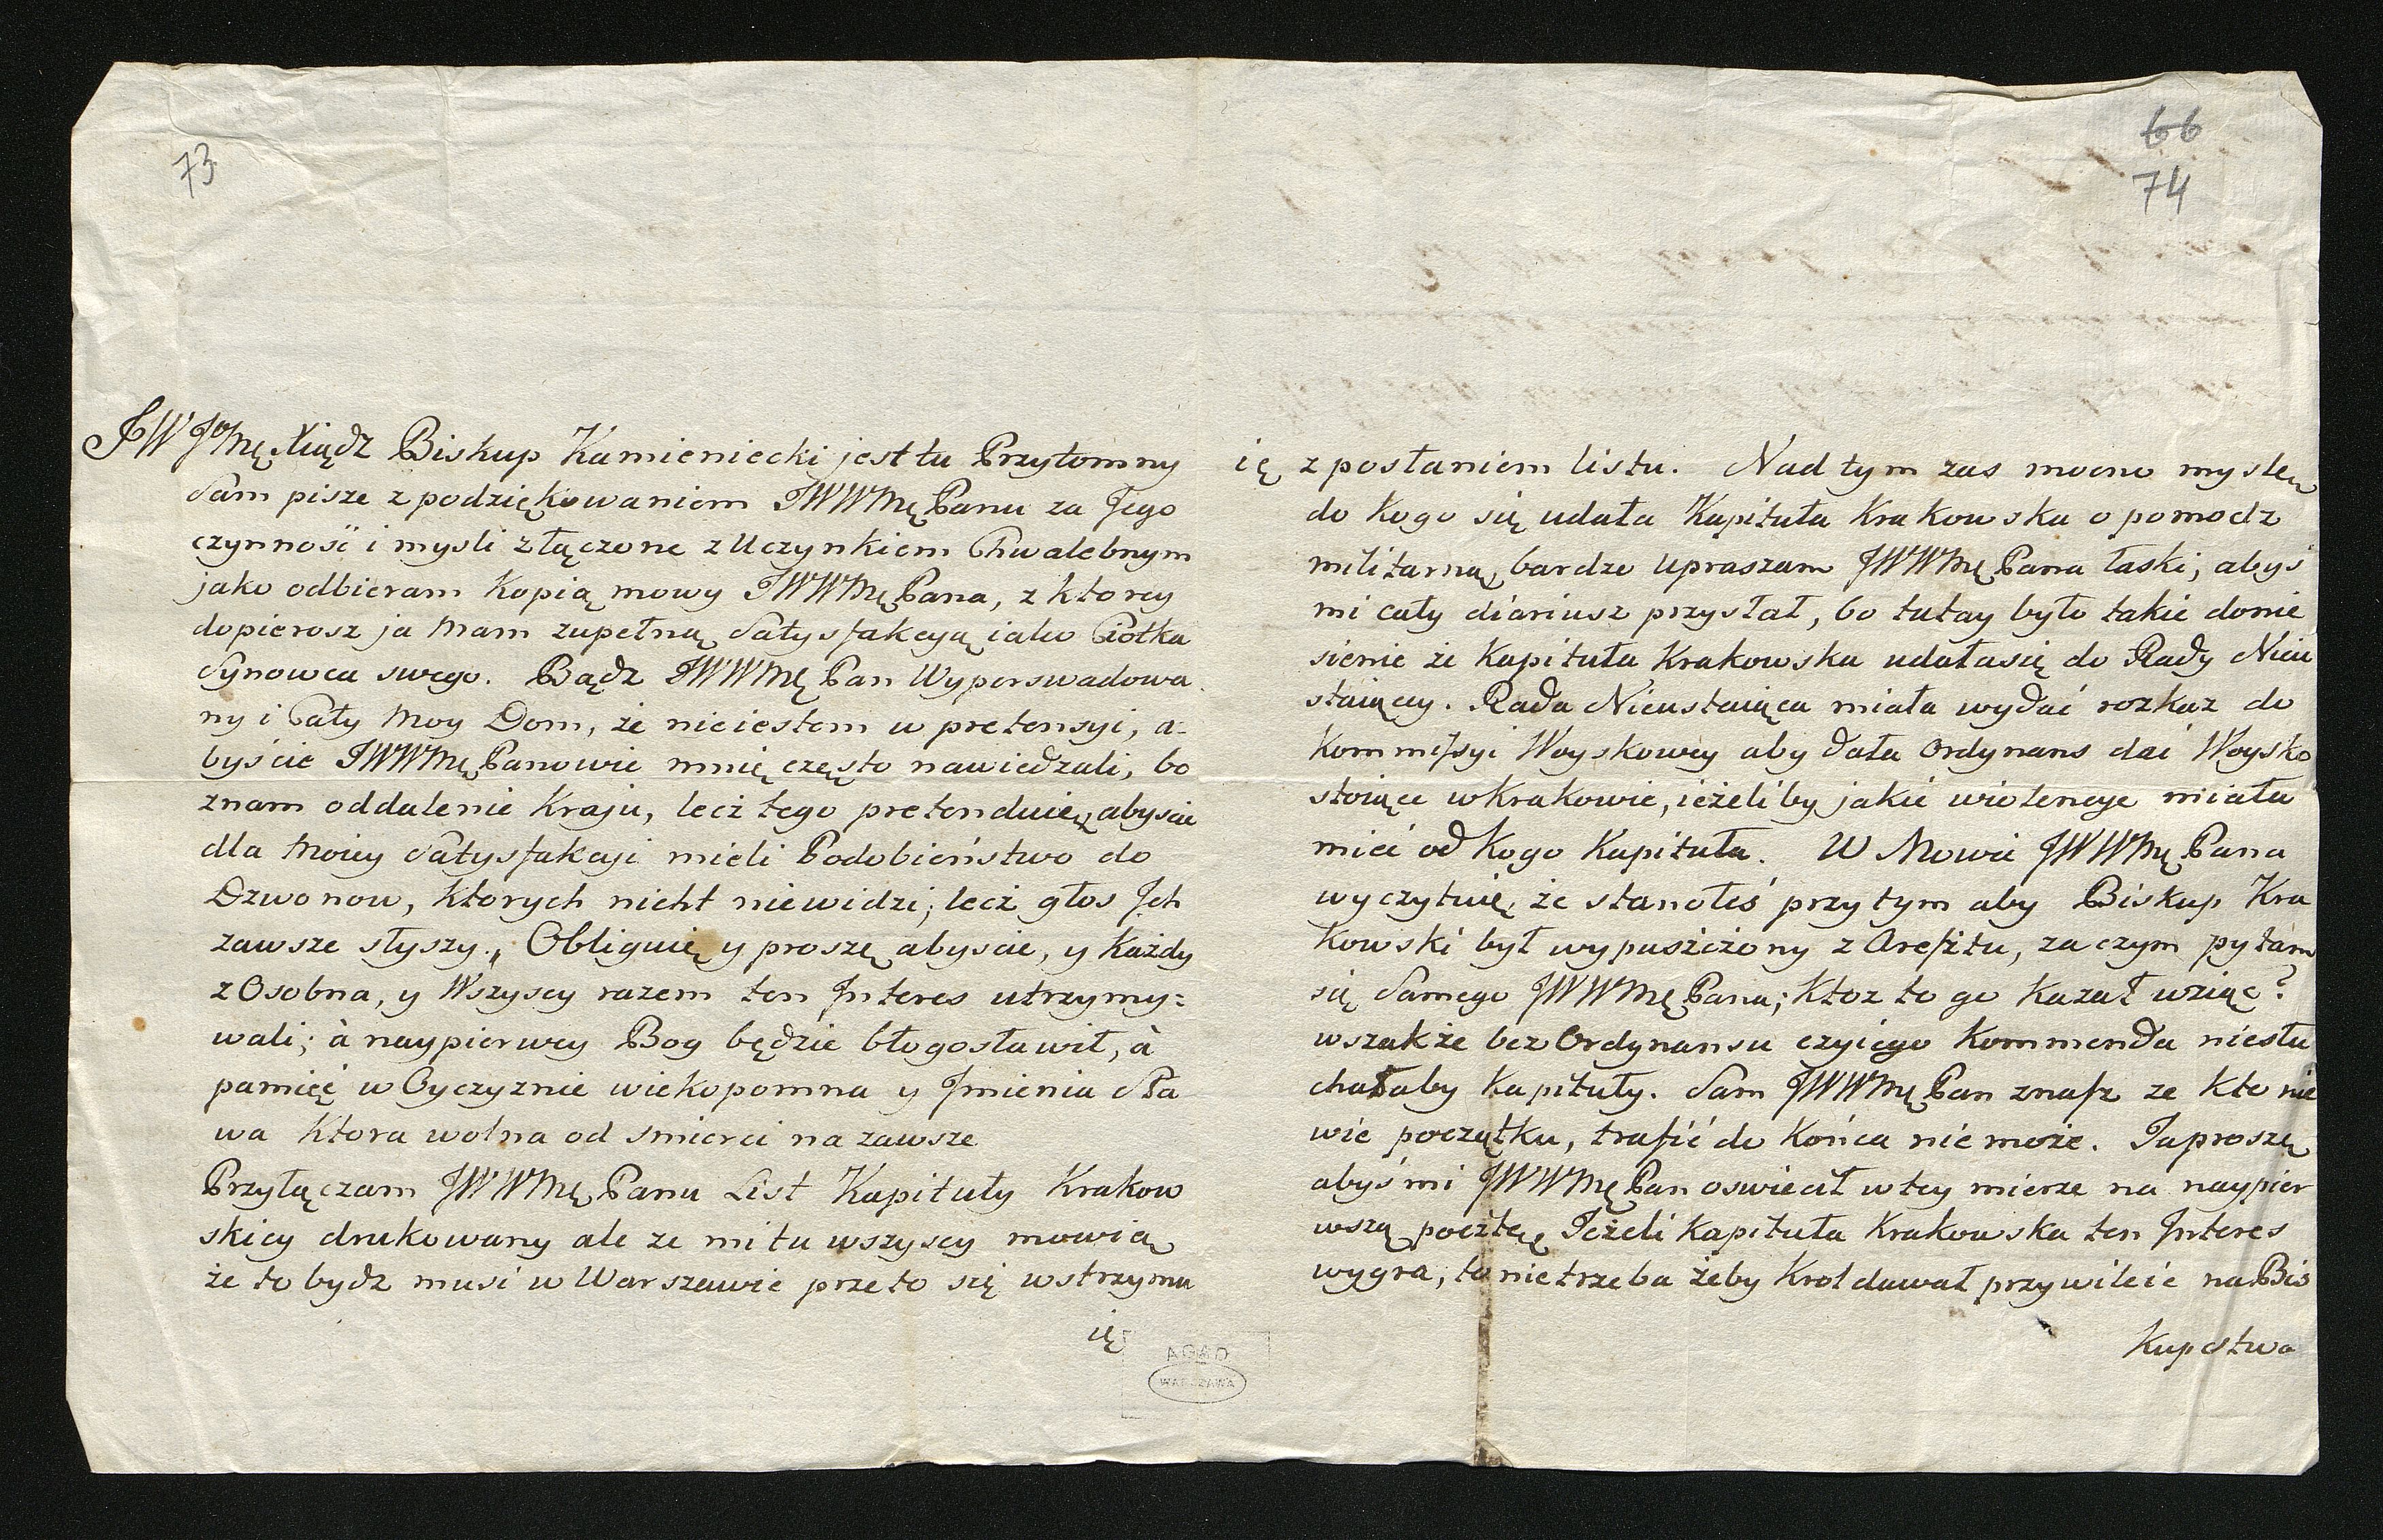 73
JW Jmę Xiądz Biskup Kamieniecki jest tu Przytomny
Sam pisze z podziękowaniem JWWMę Panu za Jego
czynność i mysli złączone z Uczynkiem Chwalebnym
jako odbieram Kopią mowy JWWMę Pana, z ktorey
dopierosz ja Mam zupełną Satysfakcyą iako Ciotka
Synowca swego. Bądz JWWMę Pan Wyperswadowa
ny i Cały Moy Dom, że nieiestem w pretensyi, a=
byście JWWMę Panowie mnię często nawiedzali, bo
znam oddalenie Kraju, lecż tego pretenduię, abyscie
dla Moiey Satysfakcji mieli Podobieństwo do
Dzwonow, ktorych nicht niewidzi; lecż głos Jch
zawsze słyszy. „ Obliguię y proszę abyscie, y Każdy
z Osobna, y Wszyscy razem ten Jnteres utrzymy=
wali; à naypierwey Bog będzie błogosławił, à
pamięć w Oyczyznie wiekopomna y Jmienia Sła
wa ktora wolna od smierci na zawsze
Przyłączam JWWMę Panu List Kapituły Krakow
skiey drukowany ale ze mi tu wszyscy mowią
że to bydz musi w Warszawie przeto się wstrzyma
ię
AGAD
WARSZAWA
66
74
ię z posłaniem listu. Nad tym zas mocno myslę
do kogo się udała Kapituła Krakowska o pomodz
militarną, bardzo Upraszam JWWMę Pana łaski, abyś
mi cały diariusz przysłał, bo tutay było takie donie
sienie że Kapituła Krakowska udałasię do Rady Nieu
staiącey. Rada Nieustaiąca miała wydać rozkaz do
Kommissyi Woyskowey aby dała Ordynans dać Woysko
stoiące w Krakowie, ieżeliby jakie wiolencye miała
mieć od Kogo Kapituła. W Mowie JWWMę Pana
wyczytuię że stanołeś przytym aby Biskup Kra
kowski był wypuszczony z Aresztu, zaczym pytam
się Samego JWWMę Pana; Ktoz to go Kazał wziąc?
wszakże bez Ordynansu czyiego Kommenda niesłu
chałaby Kapituły. Sam JWWMę Pan znasz ze kto nie
wie początku, trafić do Końca nie może. Ja proszę
abyś mi JWWMę Pan oswiecił w tey mierze na naypier
wszą pocztę, Jeżeli Kapituła Krakowska ten Jnteres
wygra, to nietrzeba żeby Krol dawał przywileie na Bis
kupstwa